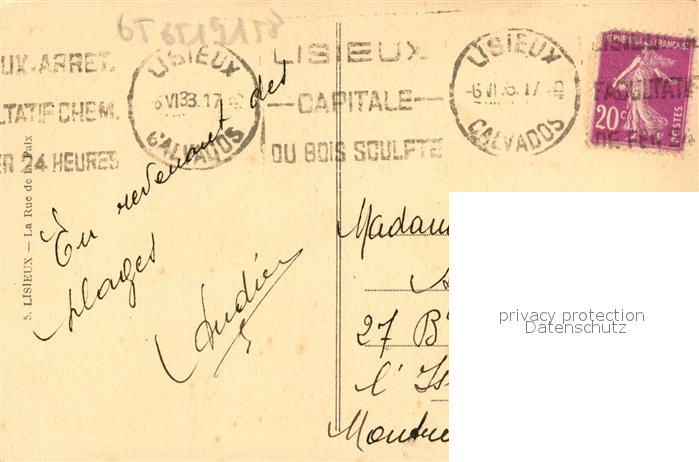 6561915
LISIEUX
CALVADOS
6 VI 33.17
UX-ARRET
LTATIF CHEM.
ER 24 HEURES
LISIEUX
—CAPITALE—
DU BOIS SCULPTE
LISIEUX
CALVADOS
-6 VI 33.17
FACULTATI
DE FER
REPUBLIQUE FRANÇAISE
20c
POSTES
5. LISIEUX — La Rue de la Paix
En revenant des
plages
Madam
27 B
l'Is
Montre
privacy protection
Datenschutz